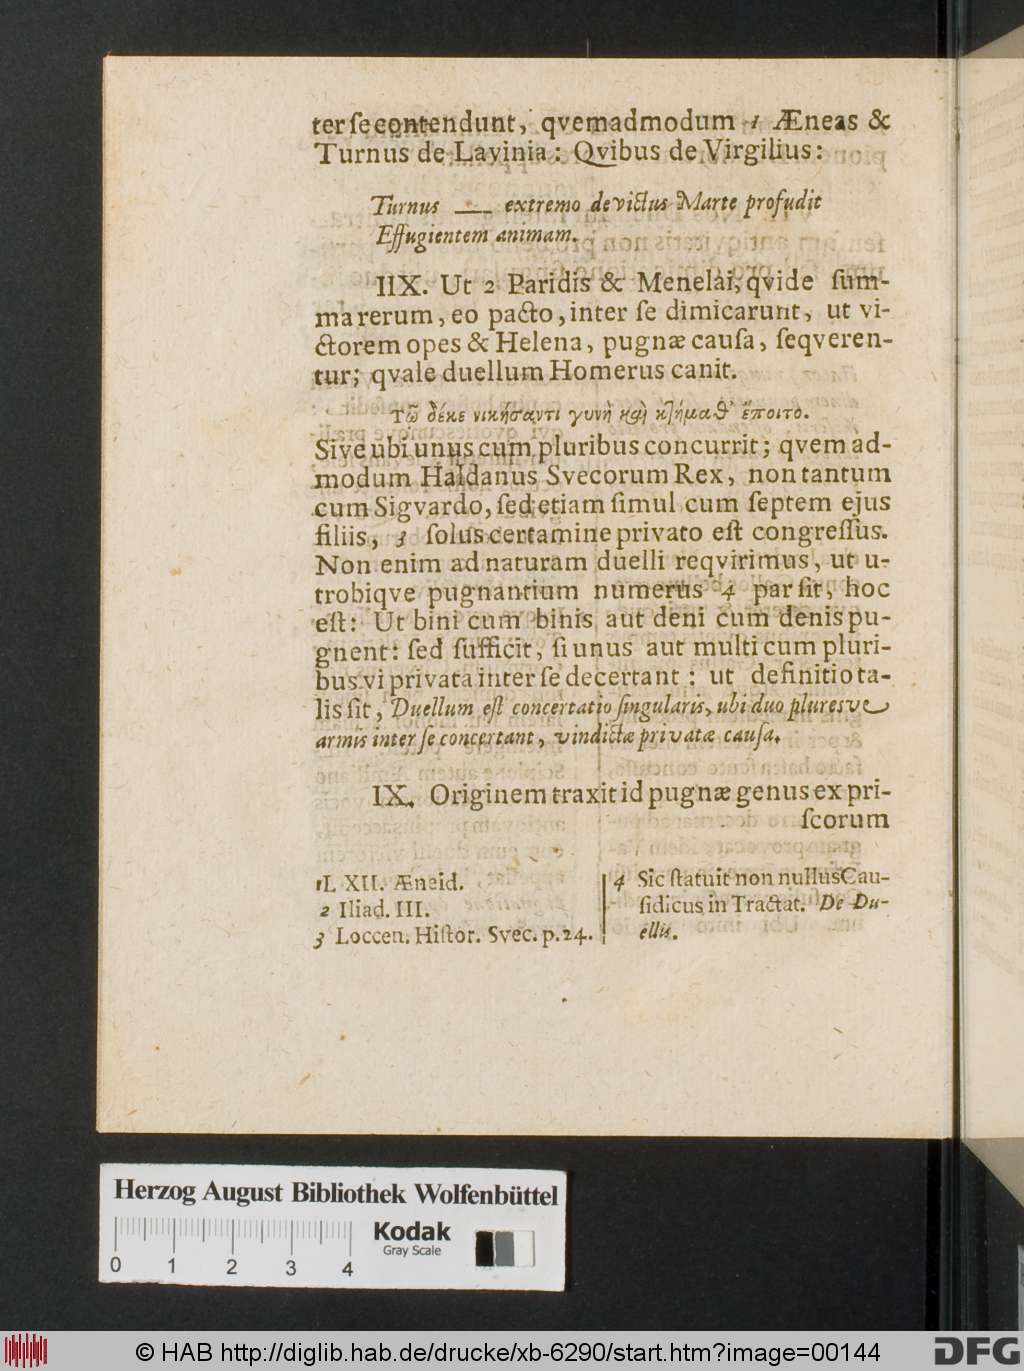 ter ſe contendunt, qvemadmodum 1 Æneas &
Turnus de Lavinia: Qvibus de Virgilius:
Turnus —— extremo devictus Marte profudit
Effugientem animam.
IIX. Ut 2 Paridis & Menelai, qvi de ſum-
ma rerum, eo pacto, inter ſe dimicarunt, ut vi-
ctorem opes & Helena, pugnæ cauſa, ſeqveren-
tur; qvale duellum Homerus canit.
Τῶ δέκε νικήσαντι γυνὴ καὶ κτήμαθ' ἕποιτο.
Sive ubi unus cum pluribus concurrit; qvem ad-
modum Haldanus Svecorum Rex, non tantum
cum Sigvardo, ſed etiam ſimul cum ſeptem ejus
filiis, 3 ſolus certamine privato eſt congreſſus.
Non enim ad naturam duelli reqvirimus, ut u-
trobiqve pugnantium numerus 4 par ſit, hoc
eſt: Ut bini cum binis aut deni cum denis pu-
gnent: ſed ſufficit, ſi unus aut multi cum pluri-
bus vi privata inter ſe decertant: ut definitio ta-
lis ſit, Duellum eſt concertatio ſingularis, ubi duo pluresve
armis inter ſe concertant, vindictæ privatæ cauſa.
IX. Originem traxit id pugnæ genus ex pri-
ſcorum
1 L XII. Æneid.
2 Iliad. III.
3 Loccen. Hiſtor. Svec. p. 24.
4 Sic ſtatuit non nullus Cau-
ſidicus in Tractat. De Du-
ellis.
Herzog August Bibliothek Wolfenbüttel
Kodak
Gray Scale
0 1 2 3 4
© HAB http://diglib.hab.de/drucke/xb-6290/start.htm?image=00144
DFG